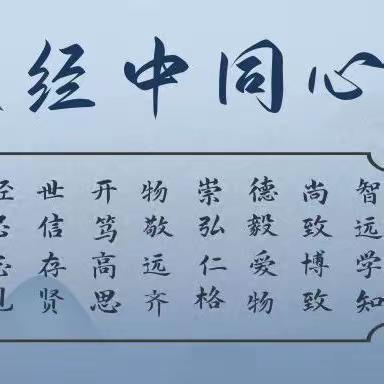 经中同心
经 世 开 物 崇 德 尚 智
信 笃 敬 弘 毅 致 远
志 存 高 远 仁 爱 博 学
贤 思 齐 格 物 致 知